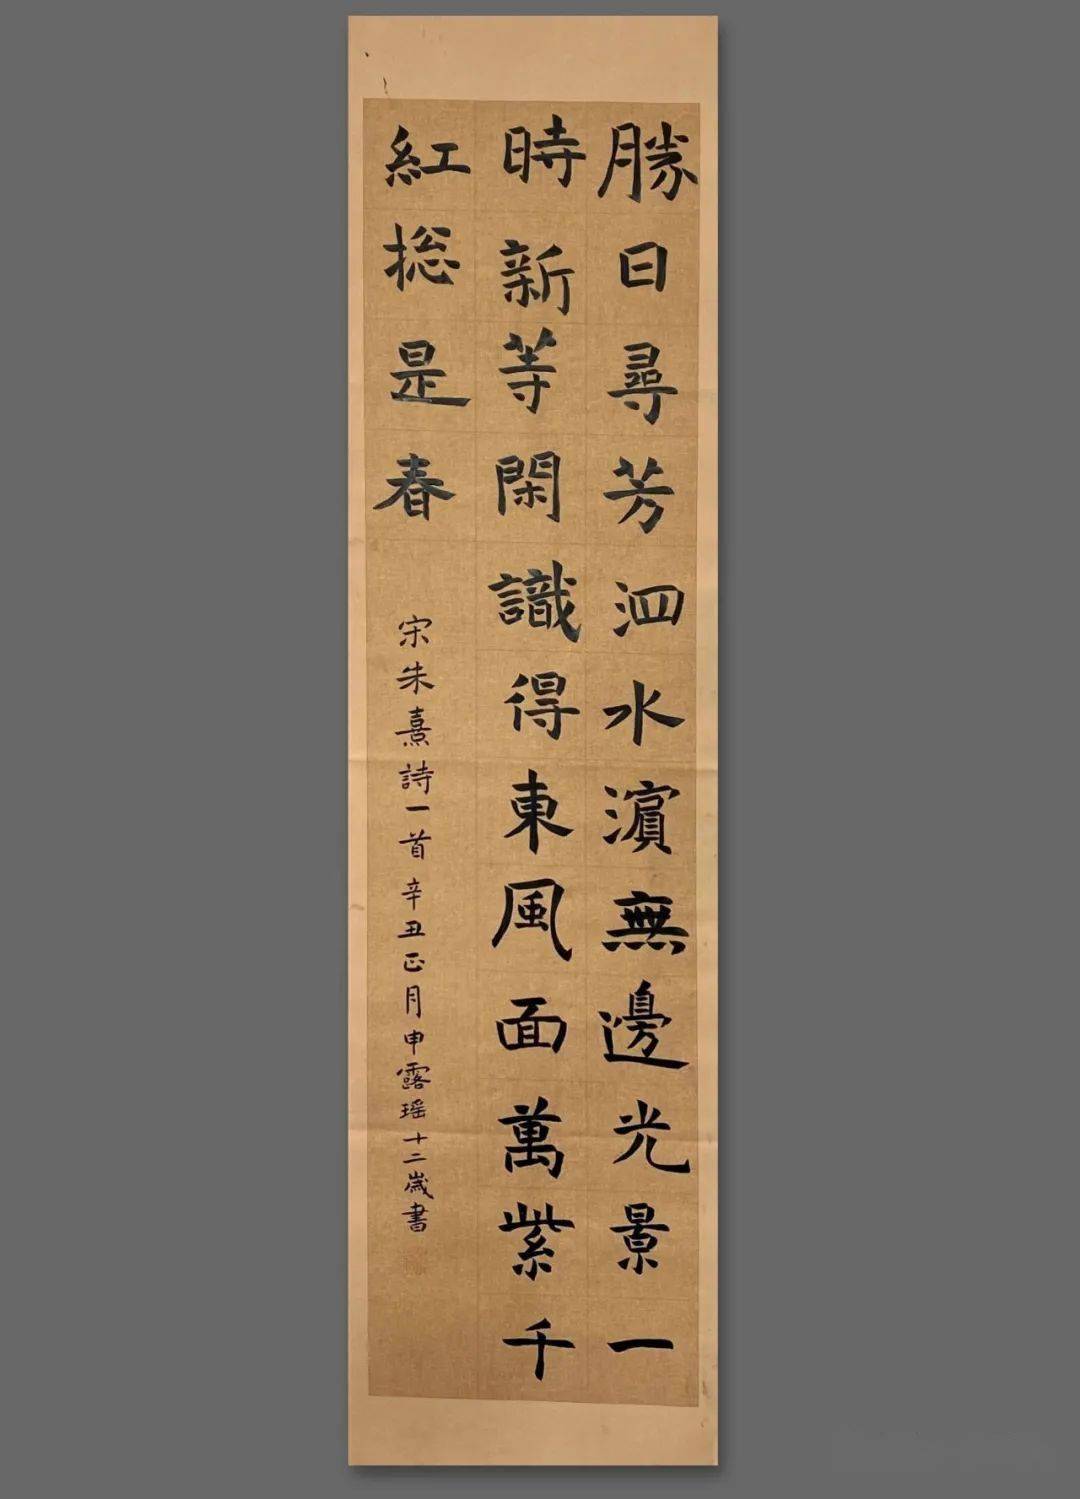 勝日尋芳泗水濵無邊光景一
時新等閑識得東風面萬紫千
紅捴是春
宋朱熹詩一首辛丑正月申露瑶十二歲書